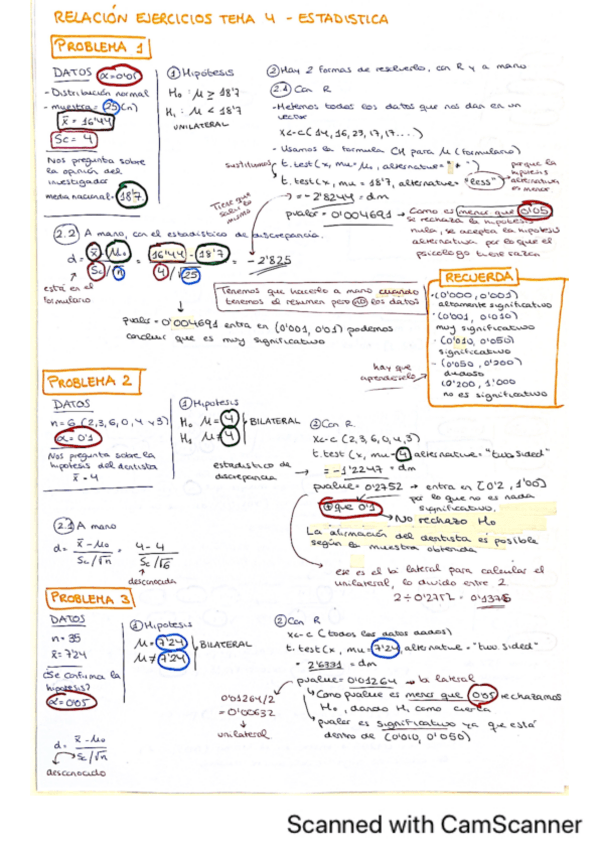 RELACIÓN EJERCICIOS TEMA 4 - ESTADISTICA
PROBLEMA 1
DATOS α=0'05
- Distribución normal
- muestra = 25 (n)
x̄ = 16'44
Sc = 4
Nos pregunta sobre
la opinión del
investigador
media nacional = 18'7
① Hipótesis
H₀: μ ≥ 18'7
H₁: μ < 18'7
UNILATERAL
② Hay 2 formas de resolverlo, con R y a mano
2.1 Con R
- Metemos todos los datos que nos dan en un
vector
x<-c(14,16,23,17,17...)
- Usamos la formula CH para μ (formulario)
sustituimos t.test(x, mu=μ₀, alternative="*")
t.test(x, mu=18'7, alternative="less")
porque la
hipótesis
alternativa
es menor
Tiene que
salir lo
mismo
→ = -2'8244 = dm
pvalor = 0'004691 → Como es menor que 0'05
se rechaza la hipótesis
nula, se acepta la hipótesis
alternativa por lo que el
psicologo tiene razón
2.2 A mano, con el estadistico de discrepancia.
d = x̄ - μ₀ / Sc/√n = 16'44 - 18'7 / 4/√25 = -2'825
está en el
formulario
Tenemos que hacerlo a mano cuando
tenemos el resumen pero no los datos
pvalor = 0'004691 entra en (0'001, 0'01) podemos
concluir que es muy significativo
RECUERDA
· (0'000, 0'001)
altamente significativo
· (0'001, 0'010)
muy significativo
· (0'010, 0'050)
significativo
- (0'050, 0'200)
dudoso
(0'200, 1'000
no es significativo
hay que
aprenderselo
PROBLEMA 2
DATOS
n=6 (2,3,6,0,4 y 3)
α=0'1
Nos pregunta sobre la
hipotesis del dentista
x̄ = 4
① Hipotesis
H₀ μ = 4
H₁ μ ≠ 4
BILATERAL
② Con R
x<-c(2,3,6,0,4,3)
t.test(x, mu=4, alternative="two.sided"
estadistico de
discrepancia
= -1'2247 = dm
pvalue = 0'2752 → entra en [0'2, 1'00)
por lo que no es nada
significativo.
que 0'1
No rechazo H₀
La afirmación del dentista es posible
según la muestra obtenida
2.1 A mano
d = x̄ - μ₀ / Sc/√n = 4 - 4 / Sc/√6
desconocida
ese es el bilateral para calcular el
unilateral, lo divido entre 2
2 ÷ 0'2752 = 0'1376
PROBLEMA 3
DATOS
n = 35
x̄ = 7'24
¿Se confirma la
hipotesis?
α=0'05
① Hipotesis
μ = 7'24
μ ≠ 7'24
BILATERAL
② Con R
x<-c (todos los datos dados)
t.test(x, mu=7'24, alternative="two.sided"
= 2'6371 = dm
pvalue = 0'01264 → bilateral
Como pvalue es menor que 0'05 rechazamos
H₀, dando H₁ como cierta
pvalor es significativo ya que está
dentro de (0'010, 0'050)
0'01264/2
= 0'00632
unilateral
d = x̄ - μ₀ / Sc/√n
desconocido
Scanned with CamScanner